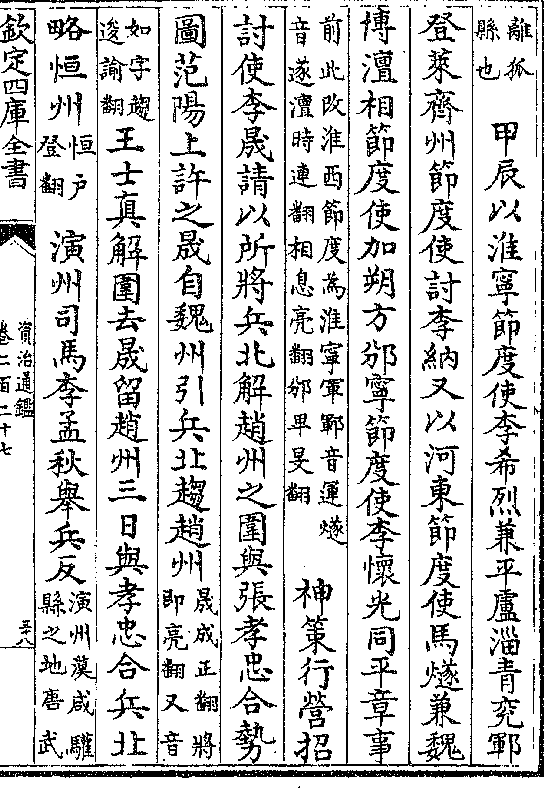 離狐
縣也
甲辰以淮寧節度使李希烈兼平盧淄青兗鄆
登萊齊州節度使討李納又以河東節度使馬燧兼魏
博澶相節度使加朔方邠寧節度使李懷光同平章事
前此改淮西節度為淮寧軍鄆音運燧
音遂澶時連翻相息亮翻邠卑旻翻
神策行營招
討使李晟請以所將兵北解趙州之圍與張孝忠合勢
圖范陽上許之晟自魏州引兵北趨趙州
晟成正翻將
即亮翻又音
如字趨
逡諭翻
王士真解圍去晟留趙州三日與孝忠合兵北
略恒州
恒戶
登翻
演州司馬李孟秋舉兵反
演州漢咸驩
縣之地唐武
欽定四庫全書
資治通鑑
卷二百二十七
五十八